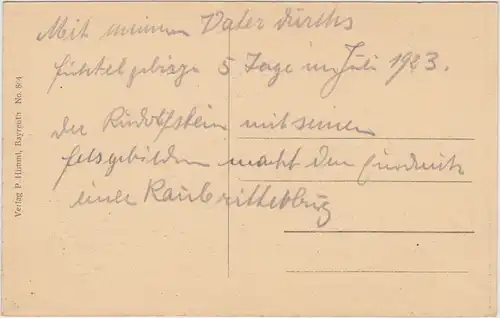 Mit meinem Vater durchs
Fichtelgebirge 5 Tage im Juli 1923.
Der Rudolfstein mit seinen
Felsgebilden macht den Eindruck
einer Raubritterburg
Verlag P. Himml, Bayreuth No. 804